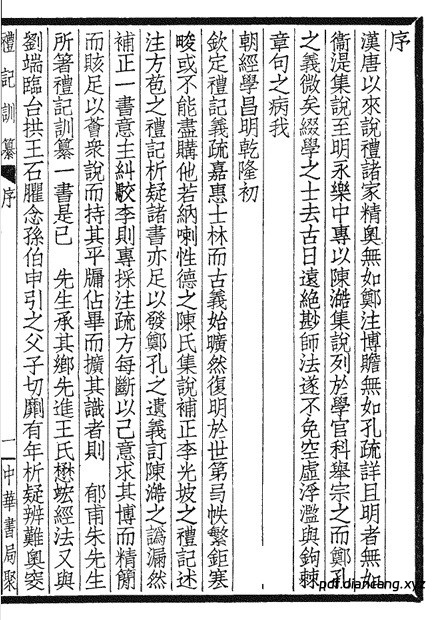 序
漢唐以來說禮諸家精奧無如鄭注博贍無如孔疏詳且明者無如
衞湜集說至明永樂中專以陳澔集說列於學官科舉宗之而鄭孔
之義微矣綴學之士去古日遠絕尠師法遂不免空虛浮濫與鉤棘
章句之病我
朝經學昌明乾隆初
欽定禮記義疏嘉惠士林而古義始曠然復明於世第弓帙繁鉅寒
畯或不能盡購他若納喇性德之陳氏集說補正李光坡之禮記述
注方苞之禮記析疑諸書亦足以發鄭孔之遺義訂陳澔之譌漏然
補正一書意主糾駮李則專採注疏方每斷以己意求其博而精簡
而賅足以薈衆說而持其平牖佔畢而擴其識者則 郁甫朱先生
所著禮記訓纂一書是已 先生承其鄉先進王氏懋竑經法又與
劉端臨台拱王石臞念孫伯申引之父子切劘有年析疑辨難奧窔
禮記訓纂 序
一 中華書局聚
pdf.diancang.xyz